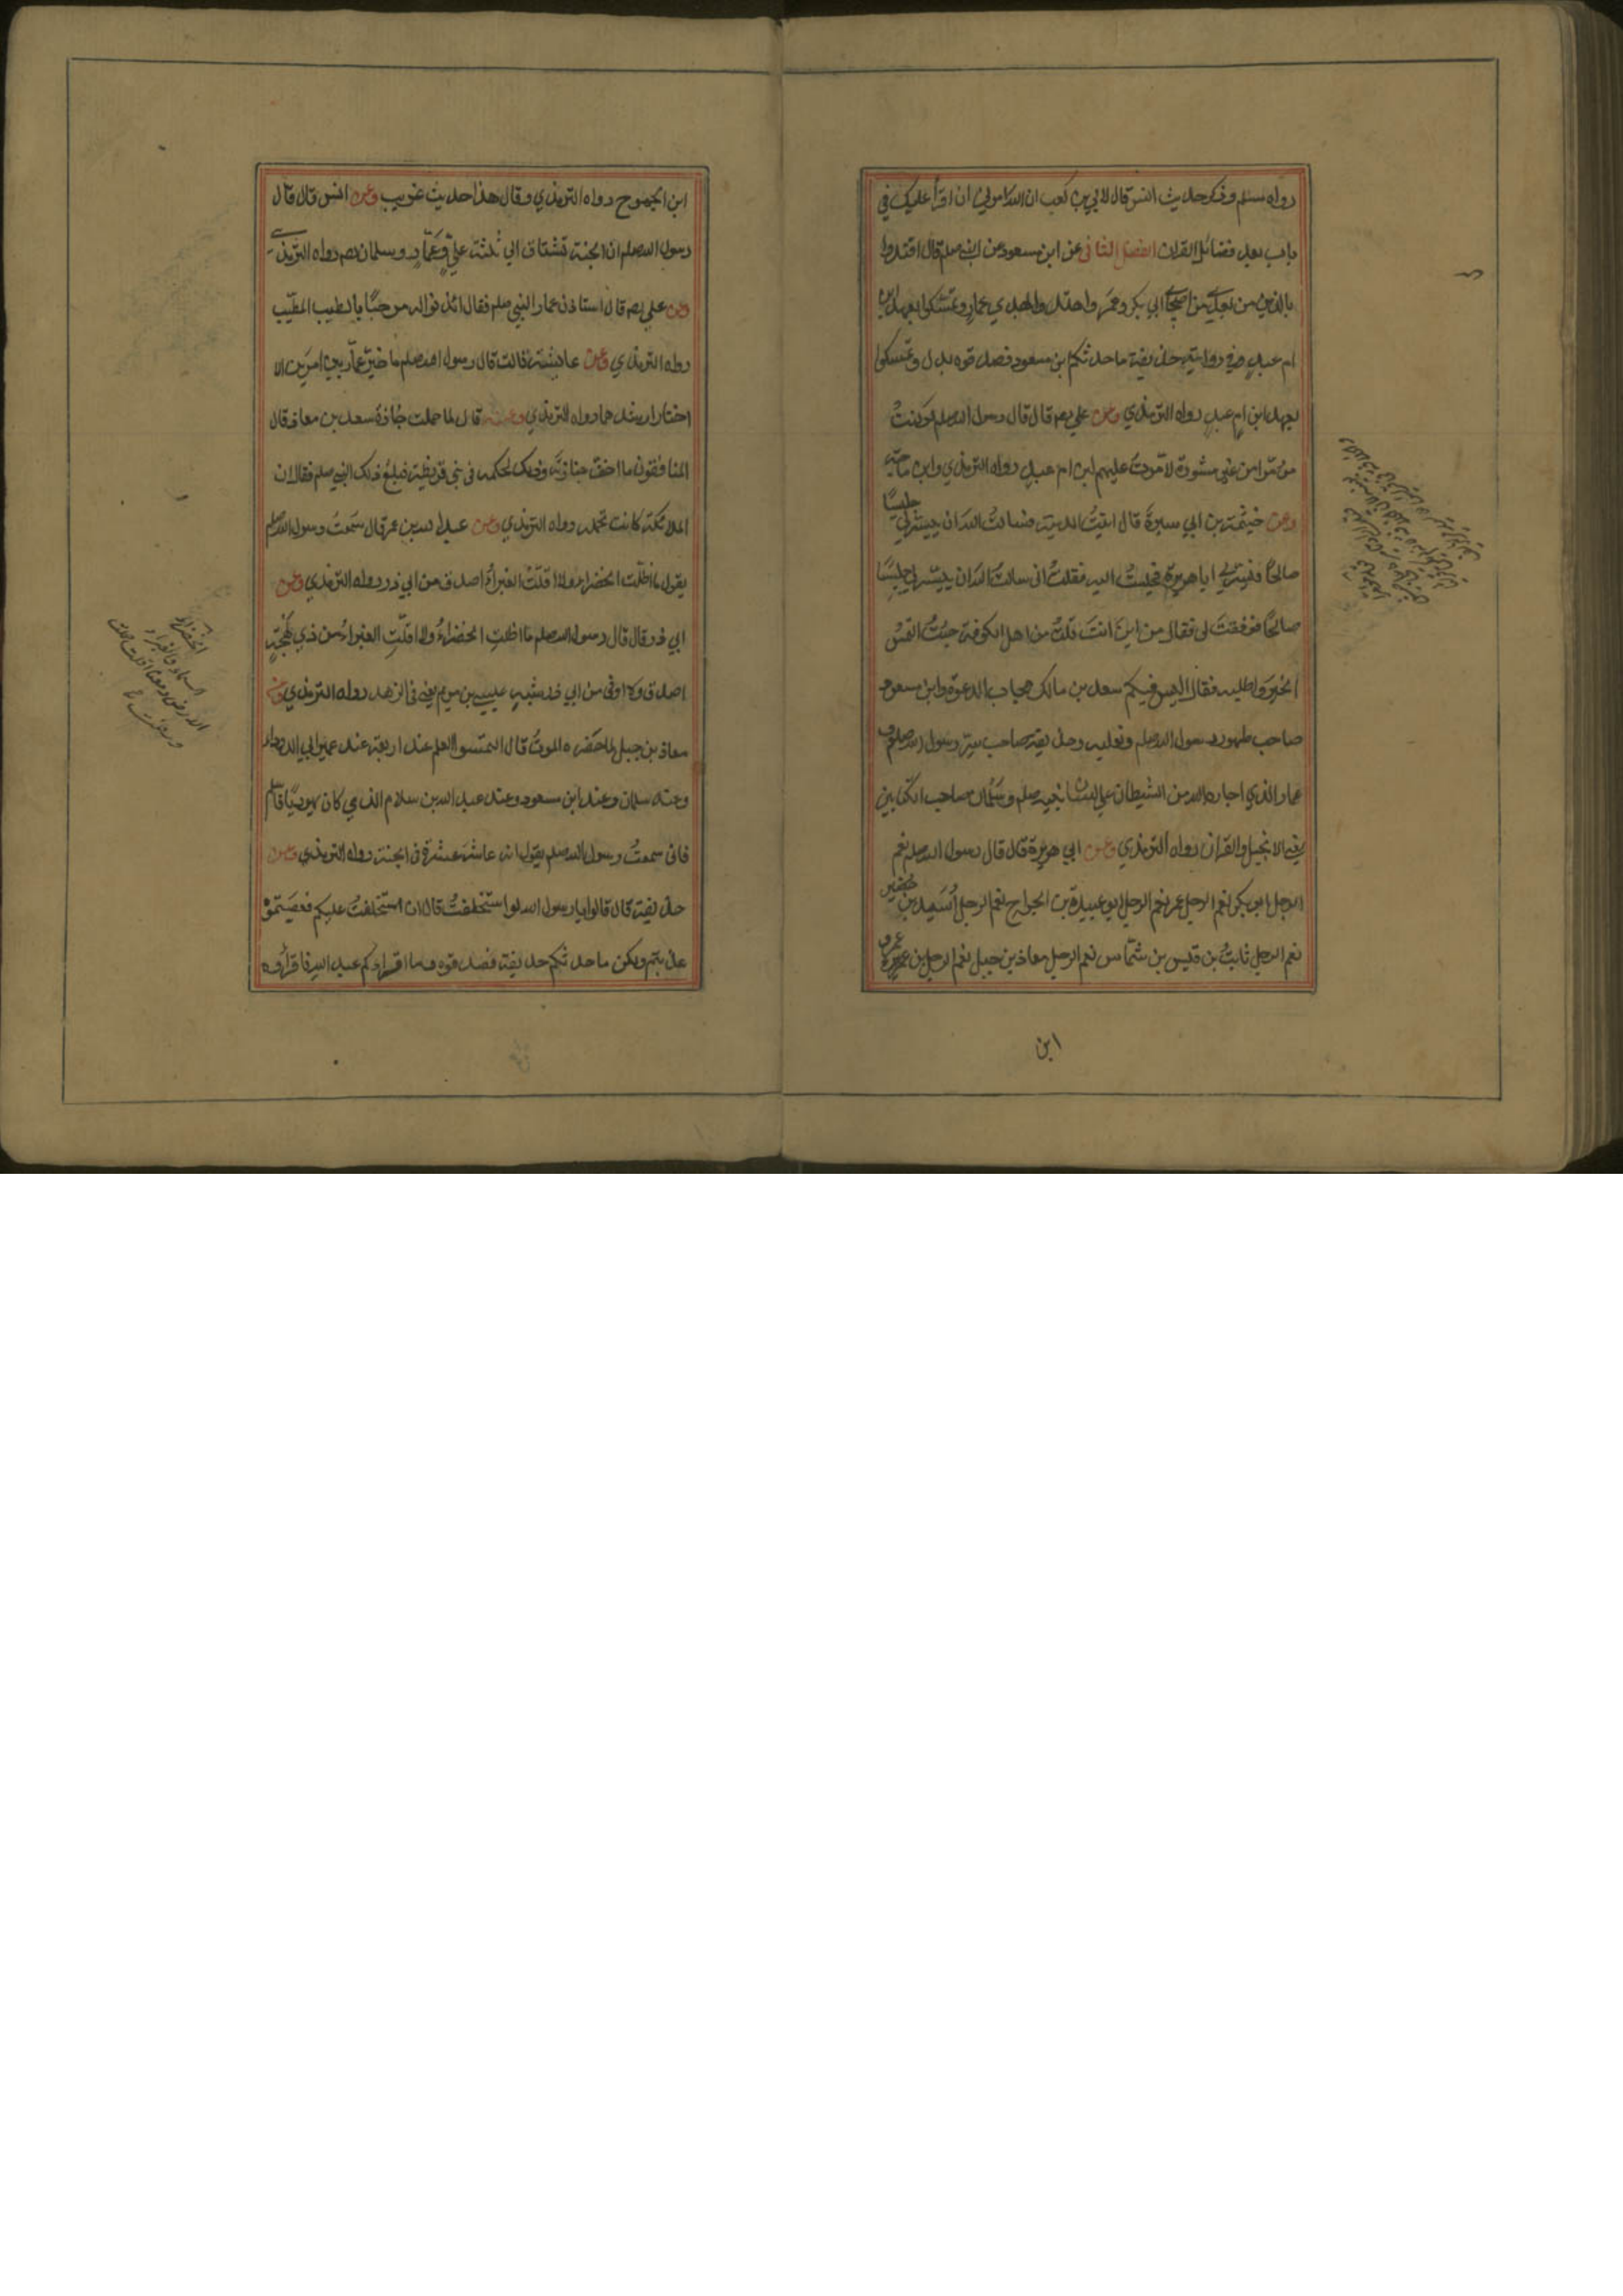 رواه مسلم وذكر حديث انس قال لابي بن كعب ان الله امرني ان اقرأ عليك في
باب بعد فضائل القران الفصل الثاني عن ابن مسعود عن النبي صلم قال اقتدوا
بالذين من بعدي من اصحابي ابي بكر وعمر واهتدوا بهدي عمار وتمسكوا بعهد ابن
ام عبد وفي رواية حذيفة ما حدثكم ابن مسعود فصدقوه بدل وتمسكوا
بعهد ابن ام عبد رواه الترمذي وعن علي رضه قال قال رسول الله صلم لو كنت
مؤمرا من غير مشورة لامرت عليهم ابن ام عبد رواه الترمذي وابن ماجه
وعن خيثمة بن ابي سبرة قال اتيت المدينة فسالت الله ان ييسر لي جليسا
صالحا فيسر لي ابا هريرة فجلست اليه فقلت اني سالت الله ان ييسر لي جليسا
صالحا فوفقت لي فقال من اين انت قلت من اهل الكوفة جئت التمس
الخير واطلبه فقال اليس فيكم سعد بن مالك مجاب الدعوة وابن مسعود
صاحب طهور رسول الله صلم ونعليه وحذيفة صاحب سر رسول الله صلم و
عمار الذي اجاره الله من الشيطان على لسان نبيه صلم وسلمان صاحب الكتابين
يعني الانجيل والقران رواه الترمذي وعن ابي هريرة قال قال رسول الله صلم نعم
الرجل ابو بكر نعم الرجل عمر نعم الرجل ابو عبيدة بن الجراح نعم الرجل اسيد بن حضير
نعم الرجل ثابت بن قيس بن شماس نعم الرجل معاذ بن جبل نعم الرجل بن عمرو
ابن
ابن الجموح رواه الترمذي وقال هذا حديث غريب وعن انس قال قال
رسول الله صلم ان الجنة تشتاق الى ثلثة علي وعمار وسلمان رضم رواه الترمذي
وعن علي رضه قال استاذن عمار النبي صلم فقال ائذنوا له مرحبا بالطيب المطيب
رواه الترمذي وعن عايشة قالت قال رسول الله صلم ما خير عمار بين امرين الا
اختار ارشدهما رواه الترمذي وعن انس قال لما حملت جنازة سعد بن معاذ قال
المنافقون ما اخف جنازته وذلك لحكمه في بني قريظة فبلغ ذلك النبي صلم فقال ان
الملائكة كانت تحمله رواه الترمذي وعن عبد الله بن عمر قال سمعت رسول الله صلم
يقول ما اظلت الخضراء ولا اقلت الغبراء اصدق من ابي ذر رواه الترمذي وعن
ابي ذر قال قال رسول الله صلم ما اظلت الخضراء ولا اقلت الغبراء من ذي لهجة
اصدق ولا اوفى من ابي ذر شبه عيسى بن مريم يعني في الزهد رواه الترمذي وعن
معاذ بن جبل لما حضره الموت قال التمسوا العلم عند اربعة عند عويمر ابي الدرداء
وعند سلمان وعند ابن مسعود وعند عبد الله بن سلام الذي كان يهوديا فاسلم
فاني سمعت رسول الله صلم يقول انه عاشر عشرة في الجنة رواه الترمذي وعن
حذيفة قال قالوا يا رسول الله لو استخلفت قال ان استخلفت عليكم فعصيتموه
عذبتم ولكن ما حدثكم حذيفة فصدقوه وما اقراكم عبد الله فاقرأوه
الخضراء
السماء والغبراء
الارض ومعنى اقلت حملت
ورفعت